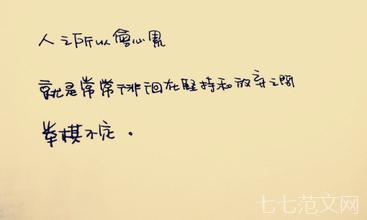 人之所以會心累
就是常常徘徊在堅持和放弃之間
举棋不定。
七七范文网